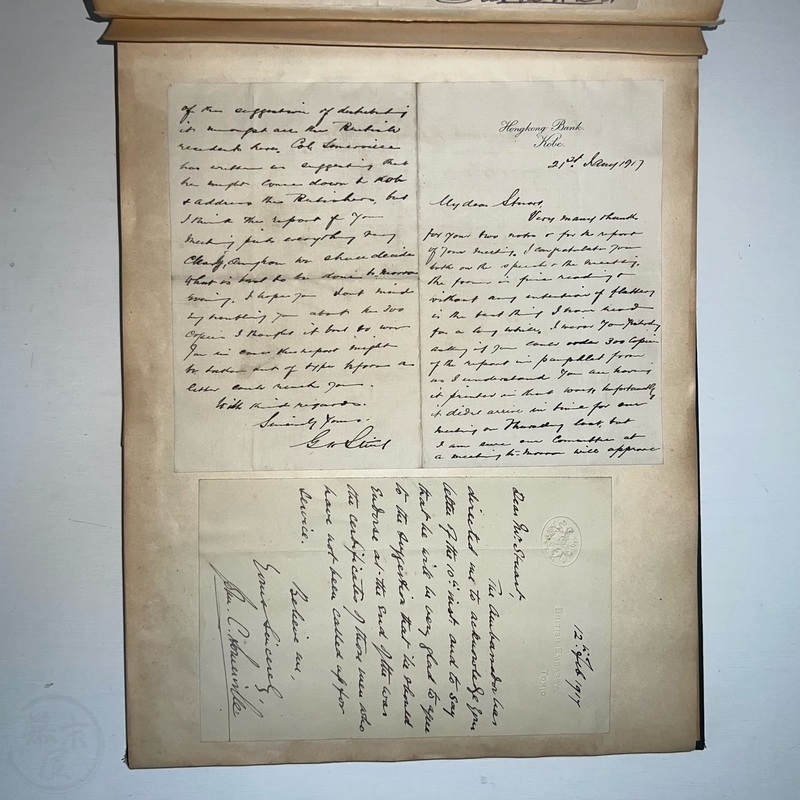 Hongkong Bank.
Kobe.
21st Jany 1917
My dear Stuart,
Very many thanks
for your two notes & for the report
of your meeting. I congratulate you
both on the speech & the meeting.
the former is fine reading &
without any intention of flattery
is the best thing I have read
for a long while. I wired you yesterday
asking if you could order 300 copies
of the report in pamphlet form
as I understand you are having
it printed in that way. Unfortunately
it didn't arrive in time for our
meeting on Thursday last, but
I am sure our Committee at
a meeting to-morrow will approve
of the suggestion of distributing
it amongst all the British
residents here. Col. Somerville
has written us suggesting that
he might come down to Kobe
& address the Britishers, but
I think the report of your
meeting puts everything very
clearly, anyhow we shall decide
what is best to be done to-morrow
evening. I hope you don't mind
my troubling you about the 300
copies I thought it best to wire
you in case the report might
be broken out of type before a
letter could reach you.
With kind regards.
Sincerely Yours.
British Embassy
Tokio
12th Feb 1917
Dear Mr Stuart,
The Ambassador has
directed me to acknowledge your
letter of the 10th inst. and to say
that he will be very glad to agree
to the suggestion that he should
Endorse at the End of the war
the certificates of those men who
have not been called up for
service.
Believe me,
Yours Sincerely
幕末
屋